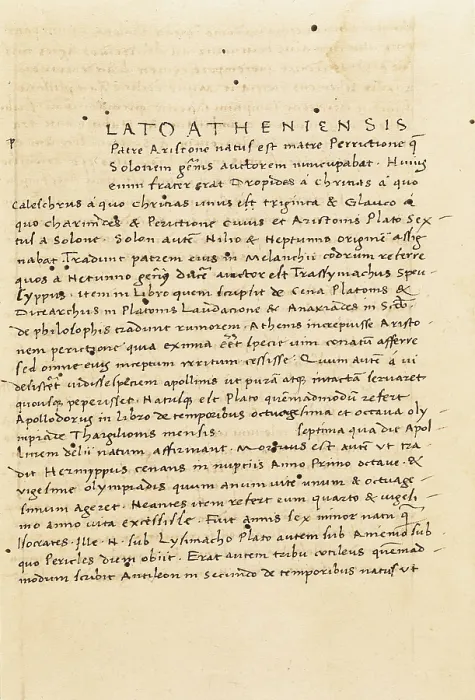 P
LATO ATHENIENSIS
Patre Aristone natus est matre Perictione q̄
Solonem gn̄is auctorem nuncupabat. Huius
enim frater erat Dropides a Chritias a quo
Caleschrus a quo Chritias unus est triginta & Glauco a
quo Charmides & Perictione cuius et Aristonis Plato Sex-
tus a Solone. Solon autē Nilio & Neptunno originē assig
nabat Tradunt patrem eius in Melanchii codrum referre
quos a Netunno genus auctor est Trassymachus Speu-
syppus. item in Libro quem scripsit de Cena Platonis &
Dicearchus in Platonis Laudatione & Anaxiades in
de philosophis tradunt rumorem. Athenis increpuisse Aristo-
nem perictione quia eximia eēt specie uim conatū afferre
sed omne eius inceptum irritum cessisse. Quum autē a ui
desisteret uidisse speciem apollinis ut purā atq intactā seruaret
quousq peperisset. Natusq est Plato quēadmodū refert
Apollodorus in libro de temporibus octuagesima et octaua oly-
mpiade Thargilionis mensis septima qua die Apol-
linem delii natum affirmant. est autē ut tra
dit Hermyppus cenans in nuptiis Anno Primo octaue. &
uigesime olympiadis quum anum uite unum & octuage-
simum ageret. Neantes item refert eum quarto & uigesi-
mo anno uita excessisse. Fuit annis sex minor natu q̄
Isocrates. Ille. N. sub Lysimacho Plato autem sub Aminio sub
quo Pericles diem obiit. Erat autem tribu cotileus quēmad-
modum scribit Antileon in Secundo de temporibus natus ut